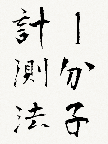 1分子
計測法